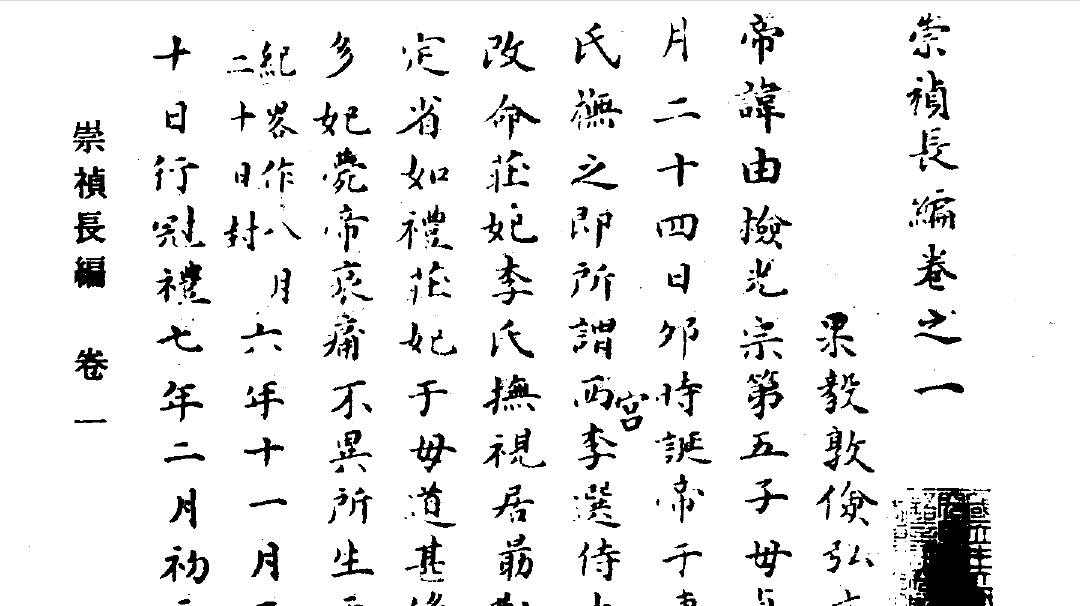 崇禎長編卷之一
果毅敦儉弘
帝諱由檢光宗第五子母
月二十四日卯時誕帝于
氏撫之即所謂西宮李選侍
改命莊妃李氏撫視居勗勤
定省如禮莊妃于母道甚
多妃薨帝哀痛不異所生
紀畧作八月
二十日封
六年十一月
十日行冠禮七年二月初
崇禎長編 卷一